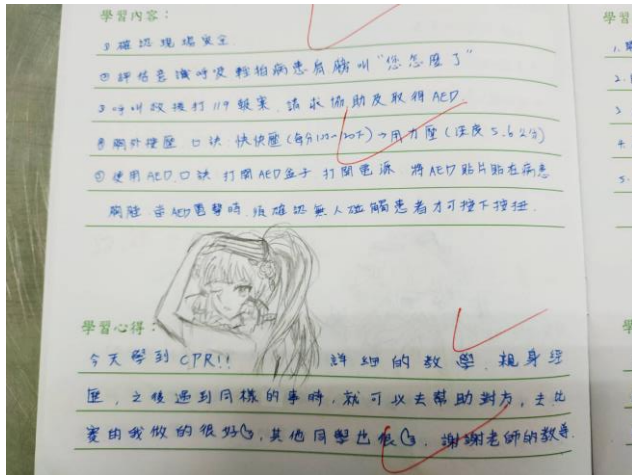 學習內容：
① 確認現場安全
② 評估意識呼吸 輕拍病患肩膀叫"您怎麼了"
③ 呼叫救援打119報案，請求協助及取得AED
④ 胸外按壓 口訣：快快壓(每分100~120下)→用力壓(深度5~6公分)
⑤ 使用AED，口訣 打開AED盒子 打開電源，將AED貼片貼在病患
胸膛，當AED電擊時，須確認無人碰觸患者才可按下按扭．
學習心得：
今天學到CPR!! 詳細的教學，親身經
歷，之後遇到同樣的事時，就可以去幫助對方，去比
賽的我做的很好，其他同學也很，謝謝老師的教導．
學習
1.
2.
3
4.
5.